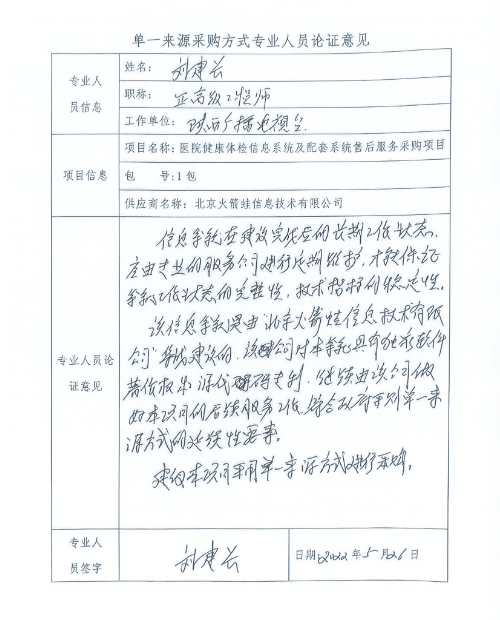 单一来源采购方式专业人员论证意见
专业人
员信息
姓名：刘建长
职称：正高级工程师
工作单位：陕西广播电视台
项目信息
项目名称：医院健康体检信息系统及配套系统售后服务采购项目
包 号：1包
供应商名称：北京火箭蛙信息技术有限公司
专业人员论
证意见
信息系统在建设完成后的长期工作状态，
应由专业的服务公司进行定期维护，才能保证
系统工作状态的完整性，技术指标的稳定性。
该信息系统是由"北京火箭蛙信息技术有限
公司"承建的，该公司对本系统具有独立软件
著作权和源代码专利，继续由该公司做
好本项目的后续服务工作，符合政府采购单一来
源方式的延续性要素。
建议本项目采用单一来源方式进行采购。
专业人
员签字
刘建长
日期：2022年5月26日